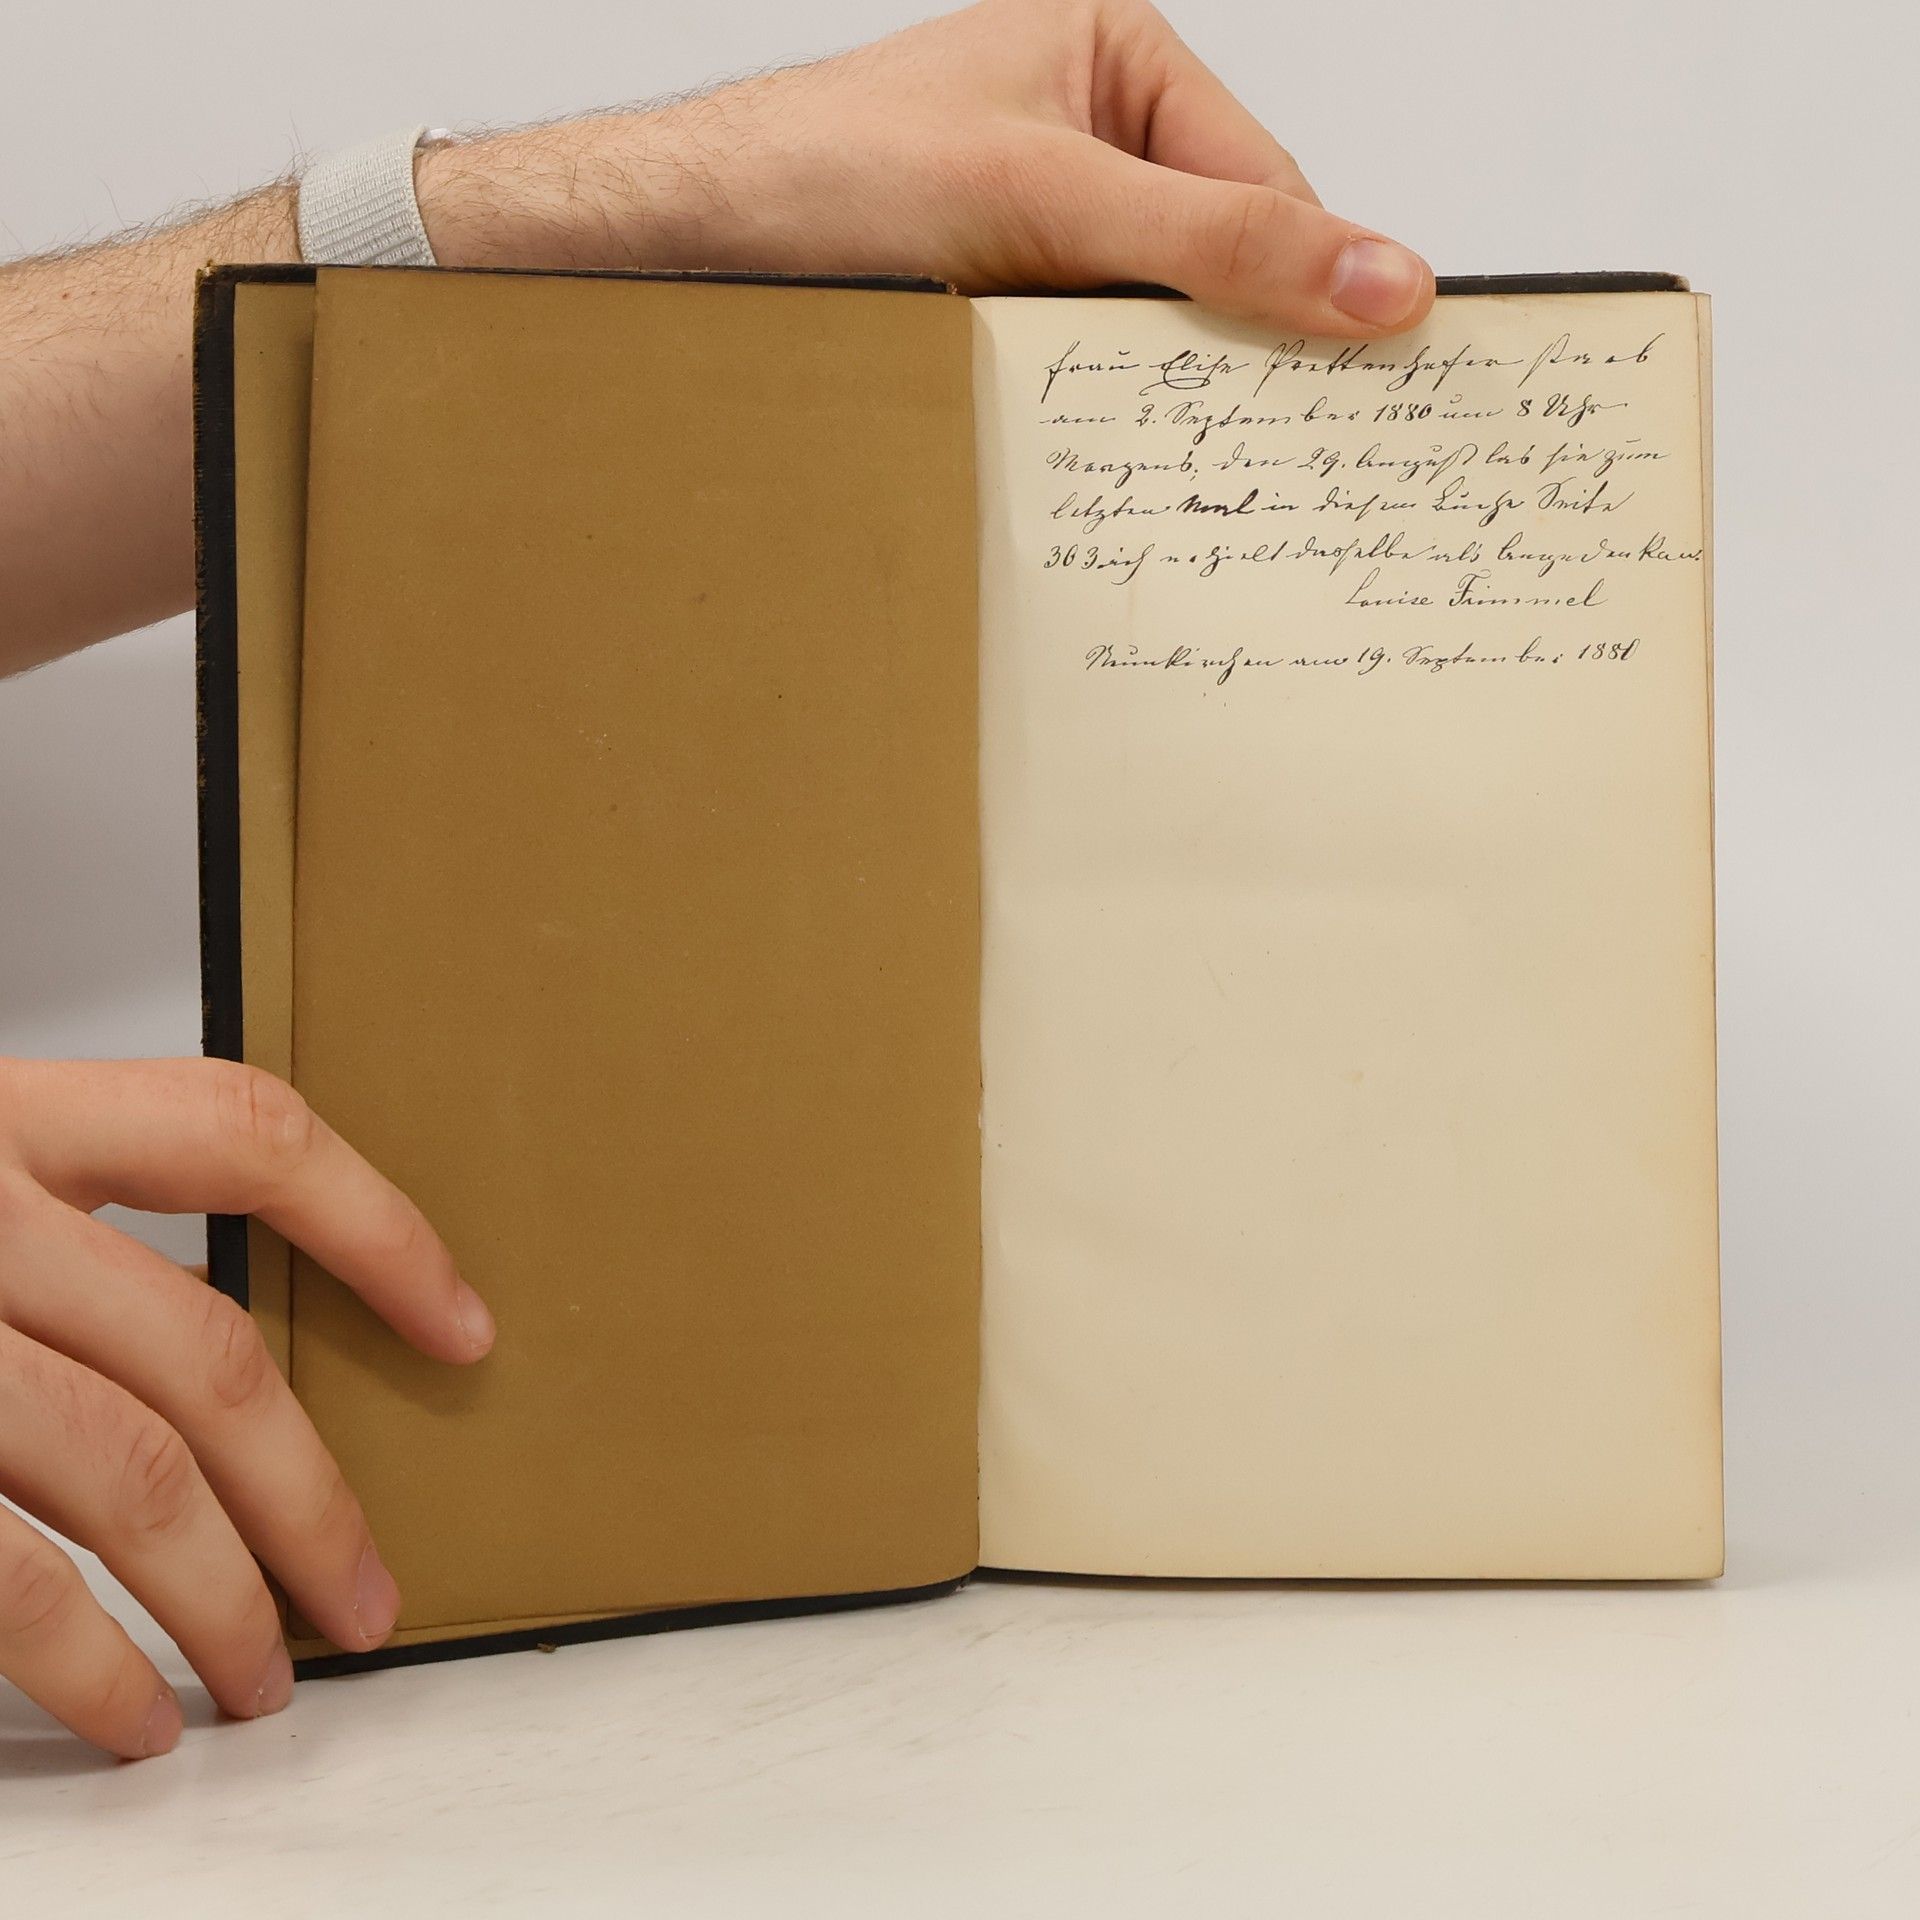 Frau Elise Prettenhofer starb
am 2. September 1880 um 8 Uhr
Morgens, den 29. August las sie zum
letzten Mal in diesem Buche Seite
303. ich erhielt dasselbe als Angedenken.
Louise Fimmel
Neunkirchen am 19. September 1880